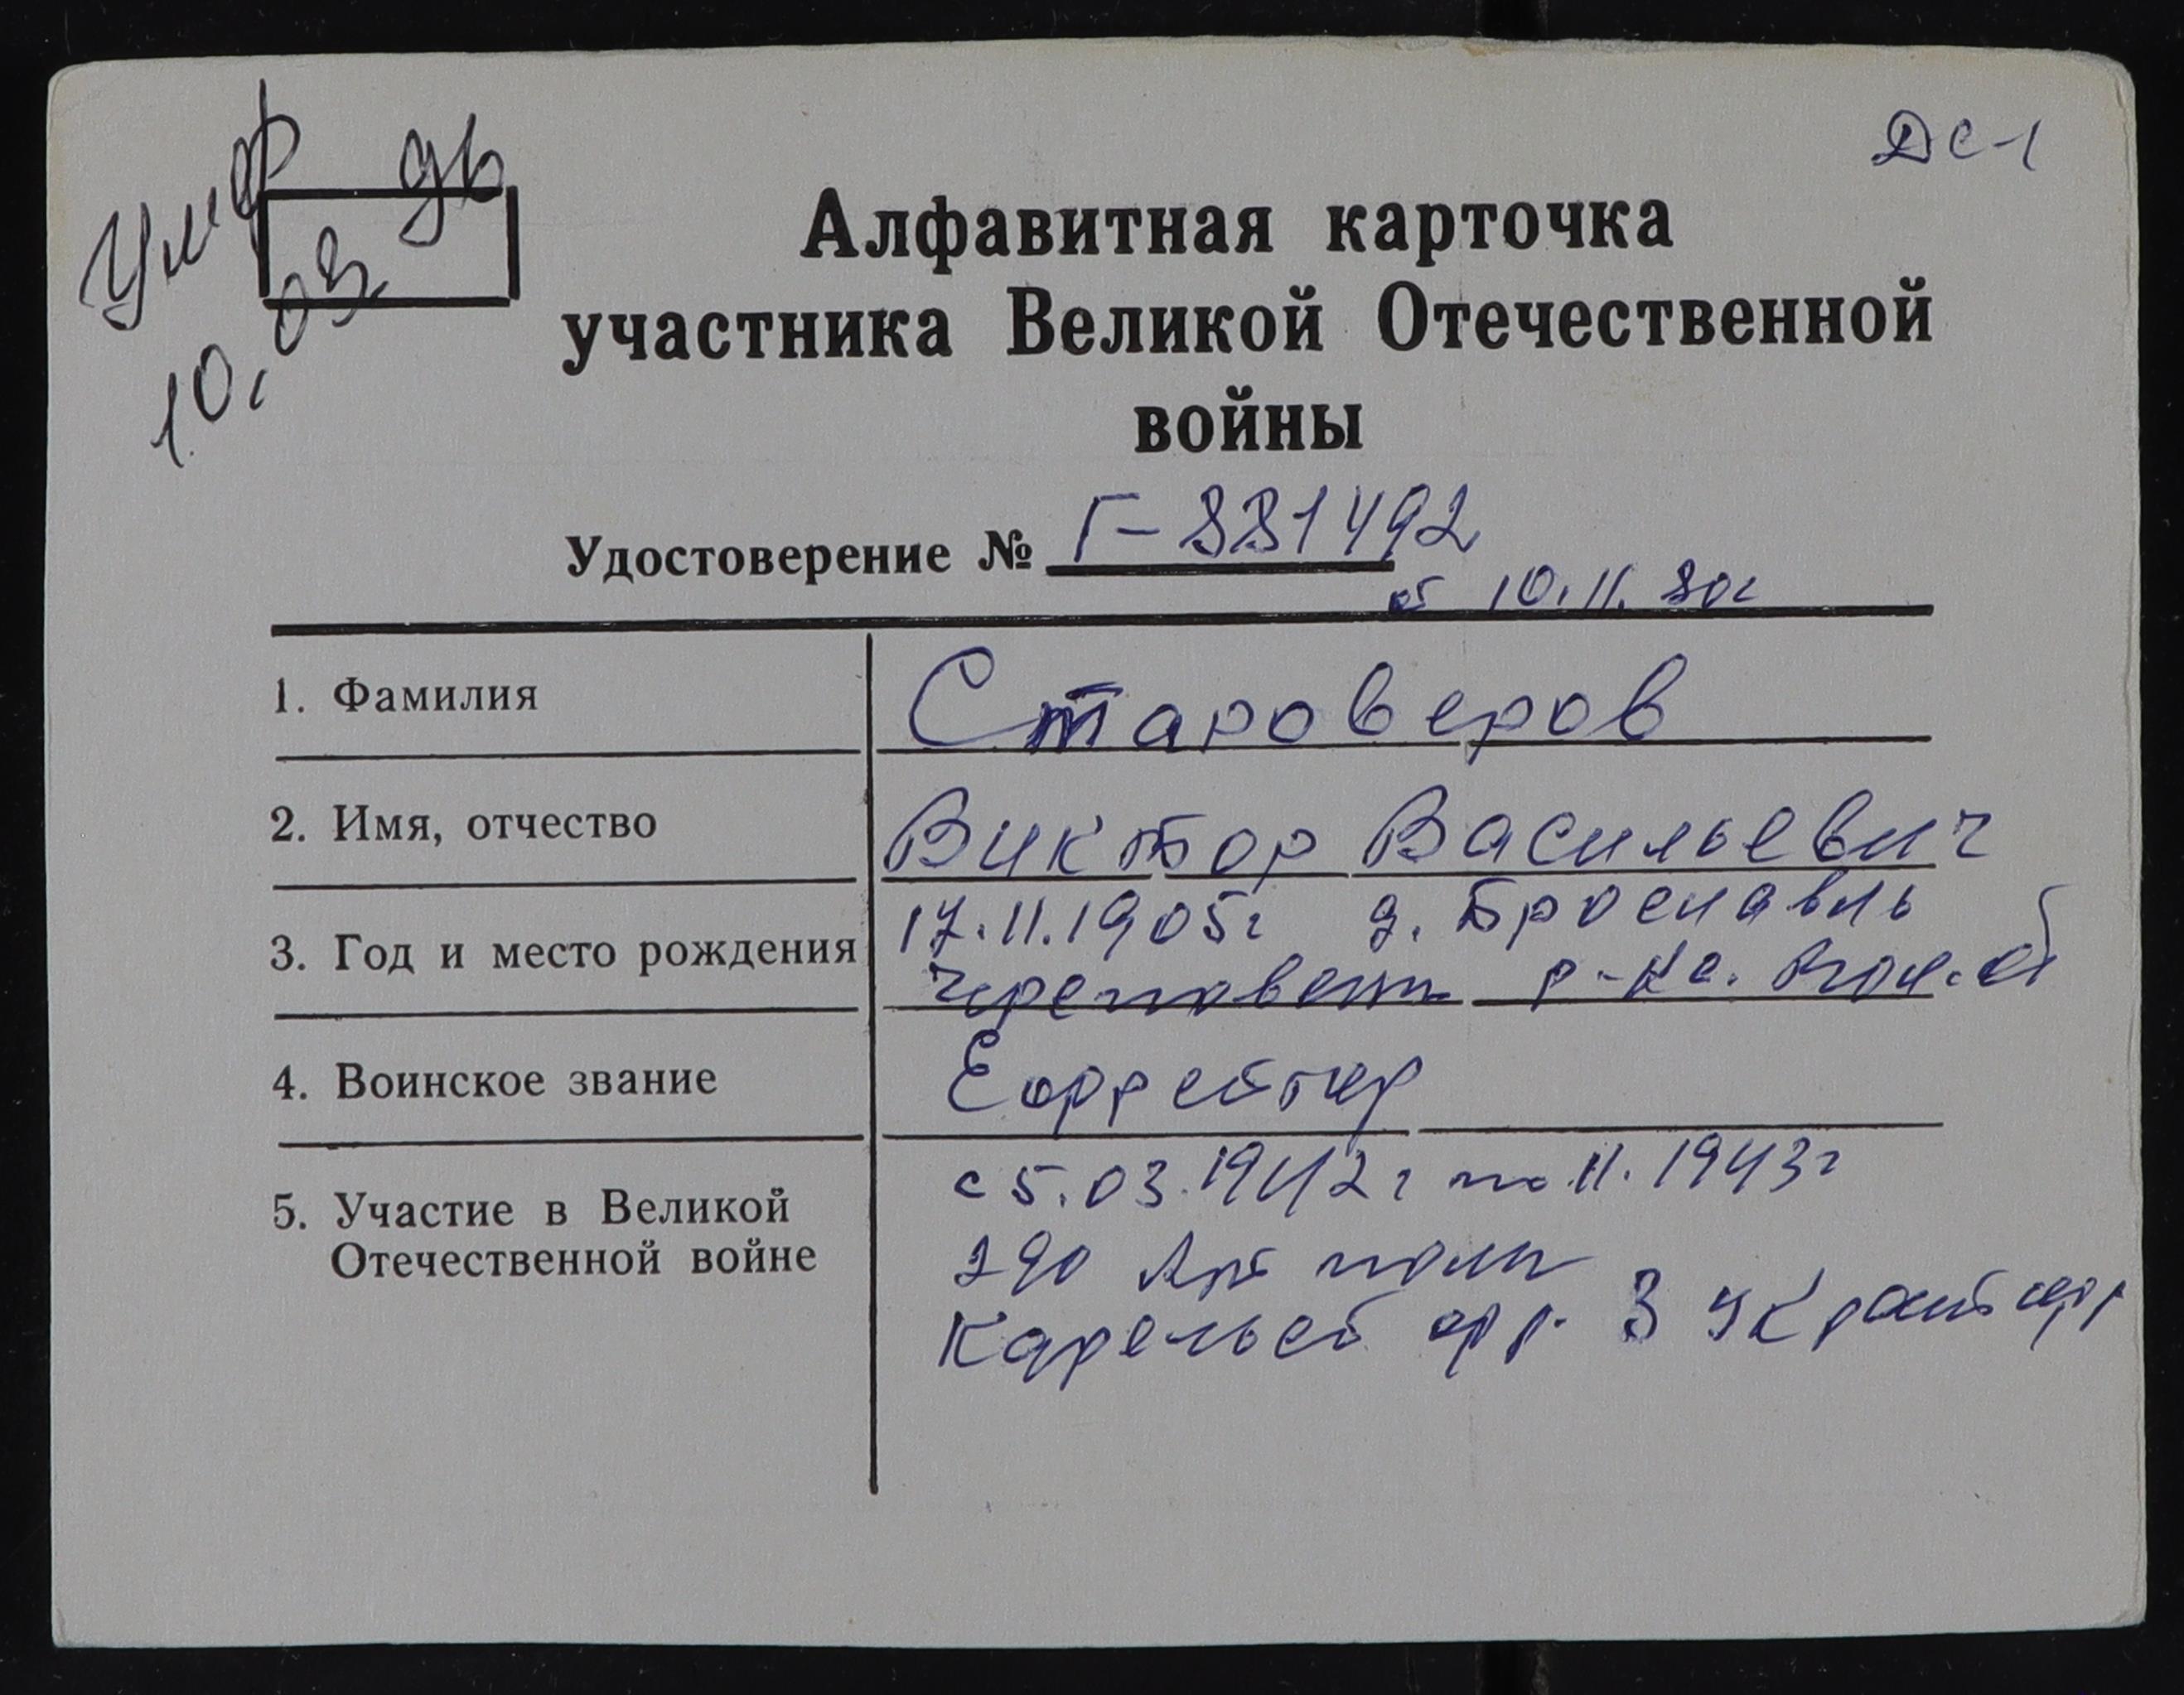 ДС-1
10.03.96
Алфавитная карточка
участника Великой Отечественной
войны
Удостоверение № Г-881492
от 10.11.80г
1. Фамилия Староверов
2. Имя, отчество Виктор Васильевич
3. Год и место рождения 17.11.1905г д.
Череповецк р-на. Волог. об
4. Воинское звание Ефрейтор
5. Участие в Великой
Отечественной войне
с 5.03.1942г по 11.1943г
290 Арт полк
Карельск фр. 3 Украинс фр